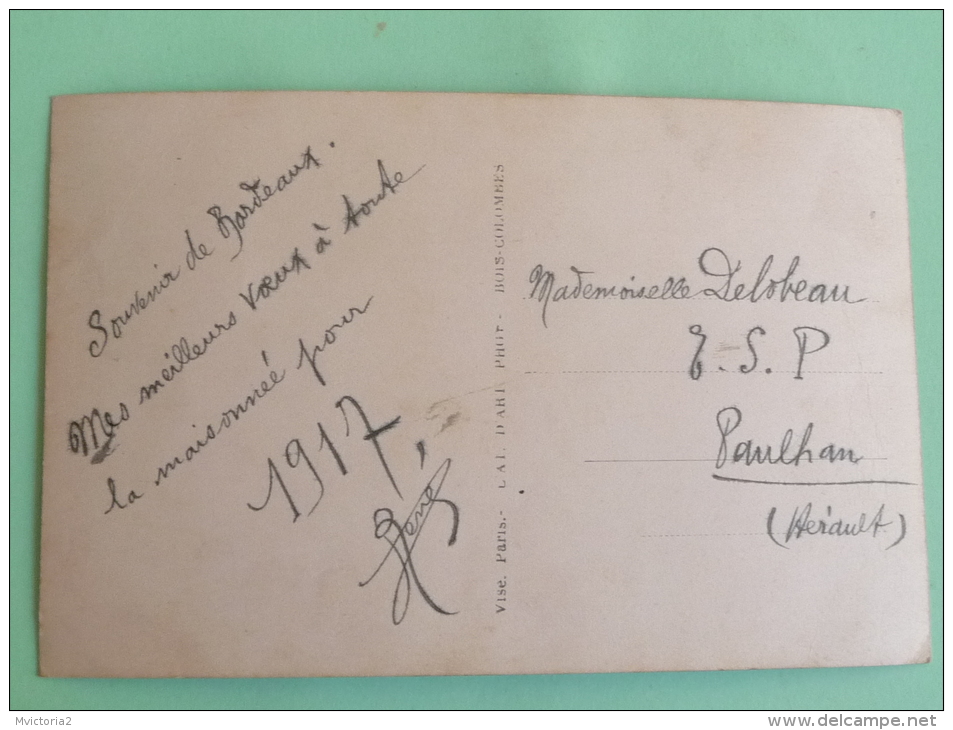 Souvenir de Bordeaux.
Mes meilleurs vœux à toute
la maisonnée pour
1917
René
Visé. Paris.- LAI. D'ART PHOT - BOIS-COLOMBES
Mademoiselle Delobeau
E. S. P
Paulhan
(Hérault)
Mvictoria2
delcampe.net